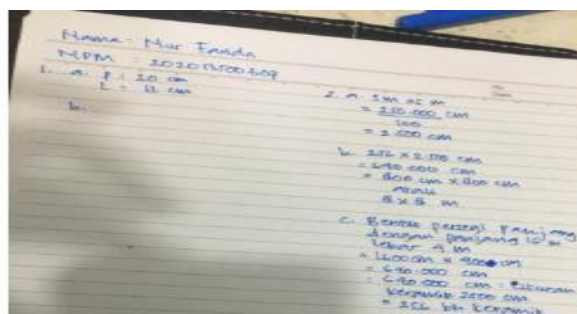 Nama : Nur Fanda
NPM : 202013500509
1. a. p : 20 cm
L : 12 cm
b.
2. a. 5m x 5 m
= 250.000 cm
100
= 2.500 cm
b. 256 x 2.500 cm
= 640.000 cm
= 800 cm x 800 cm
atau
8 x 8 m
c. Bentuk persegi panjang
dengan panjang 16 m
lebar 4 m
= 1600 cm x 400 cm
= 640.000 cm
= 640.000 cm : Ukuran
keramik 2500 cm
= 256 bh keramik